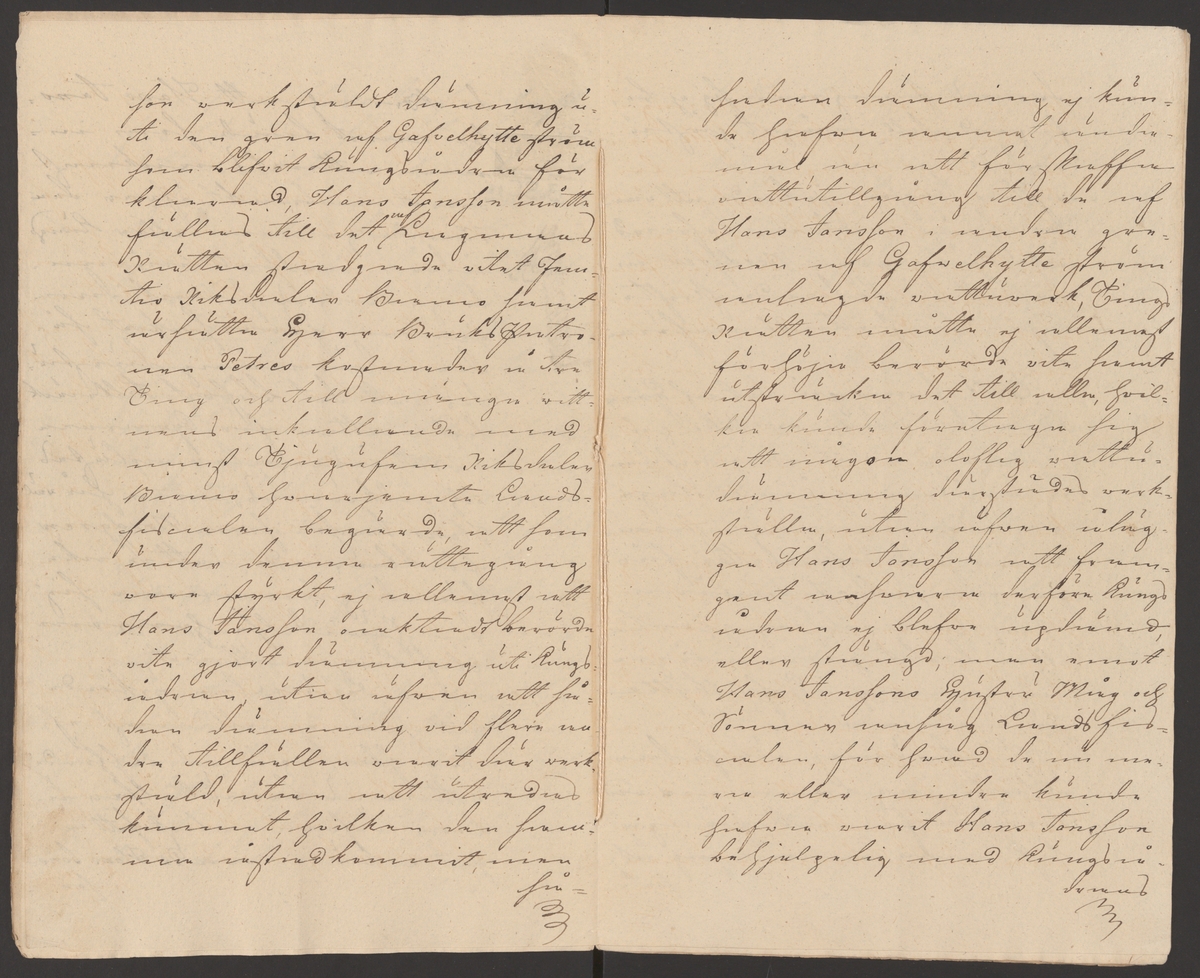 son werkstäldt dämning u-
ti den gren af Gafvelhytte ström
som blifvit Kungsådra för
klarad, Hans Jansson måtte
fällas till det af Lagmans
Rätten stadgade vitet Fem-
tio Riksdaler Banco samt
ersätta Herr Bruks Patro-
nen Petres kostnader å tre
Ting och till många vitt-
nens inkallande med
minst Tjugufem Riksdaler
Banco hvarjemte Lands-
fiscalen begärde, att som
under denna rättegång
vore styrkt, ej allenast att
Hans Jansson oaktadt berörde
vite gjort dämning uti Kungs-
ådran, utan äfven att så-
dan dämning vid flere an
dra tillfällen varit där werk-
stäld, utan att utredas
kunnat, hvilken den sam-
ma åstadkommit, men
så-
sådan dämning ej kun-
de hafva annat ända-
mål än att förskaffa
vattutillgång till de af
Hans Jansson i andra gre-
nen af Gafwelhytte ström
anlagde vattuverk, Tings
Rätten måtte ej allenast
förhöja berörde vite samt
utsträcka det till alla, hvil-
ka kunde företaga sig
att någon oloflig vattu-
dämning därstädes verk-
ställa, utan äfven åläg-
ga Hans Jansson att fram-
gent ansvara derföre Kungs
ådran ej blefve updämd,
eller stängd; men emot
Hans Janssons Hustru Måg och
Sönner ansåg Landsfis-
calen, för hvad de nu me-
ra eller mindre kunde
hafva varit Hans Jansson
behjelpelig med Kungså-
drans